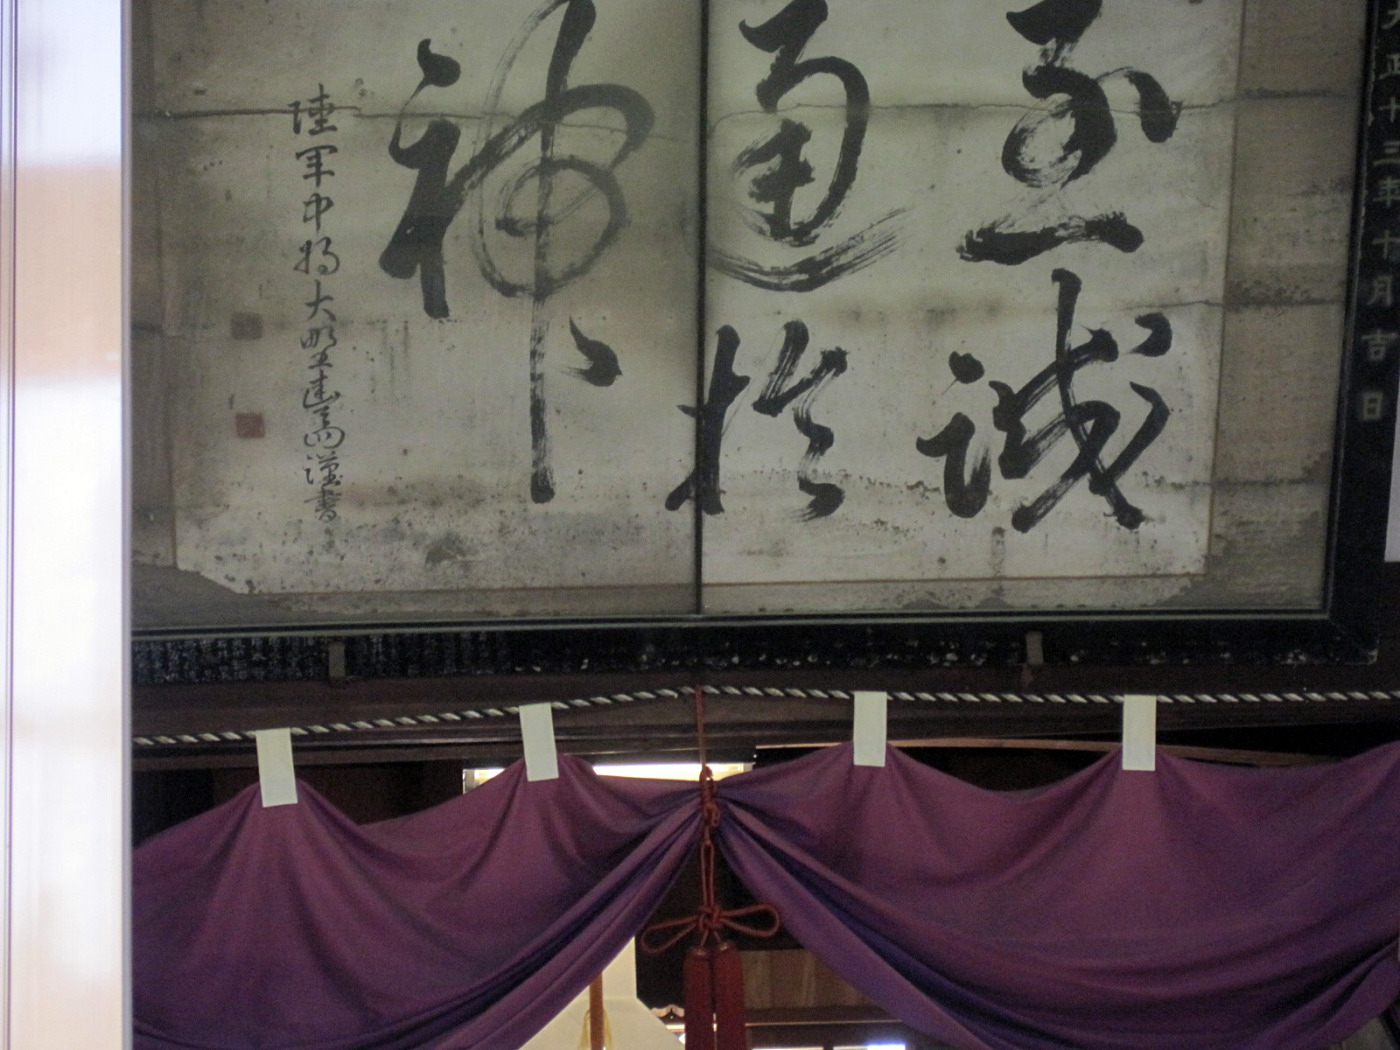 大正十三年十月吉日
至誠
通於
神
陸軍中将大 謹書